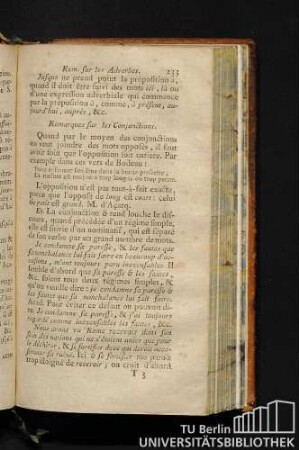 Rem. sur les Adverbes. 233
Jusque ne prend point la préposition à,
quand il doit être suivi des mots ici, là ou
d'une expression adverbiale qui commence
par la préposition à, comme, à présent, au-
jourd'hui, auprès, &c.
Remarques sur les Conjonctions.
Quand par le moyen des conjonctions
on veut joindre des mots opposés, il faut
avoir soin que l'opposition soit entiere. Par
exemple dans ces vers de Boileau :
La nature est toujours trop longue ou trop petite.
L'opposition n'est pas tout-à-fait exacte,
parce que l'opposé de long est court : celui
de petit est grand. M. d'Açarq.
Et. La conjonction & rend louche le dis-
cours, quand précédée d'un régime simple,
elle est suivie d'un nominatif, qui est séparé
de son verbe par un grand nombre de mots.
Je condamne sa paresse, & les fautes que
sa nonchalance lui fait faire en beaucoup d'oc-
casions, m'ont toujours paru inexcusables. Il
semble d'abord que sa paresse & les fautes,
&c. soient tous deux régimes simples, &
qu'on veuille dire : je condamne sa paresse &
les fautes que sa nonchalance lui fait faire.
Pour éviter ce défaut on pouvoit di-
re, Je condamne sa paresse, & j'ai toujours
regardé comme inexcusables les fautes, &c.
Nous avons vu Rome recevoir dans son
sein des nations qui ne s'étoient unies que pour
la détruire, & se fortifier
sa ruine. Ici & se fortifier me paroît
trop éloigné de recevoir ; on croit d'abord
T 3
TU Berlin
UNIVERSITÄTSBIBLIOTHEK